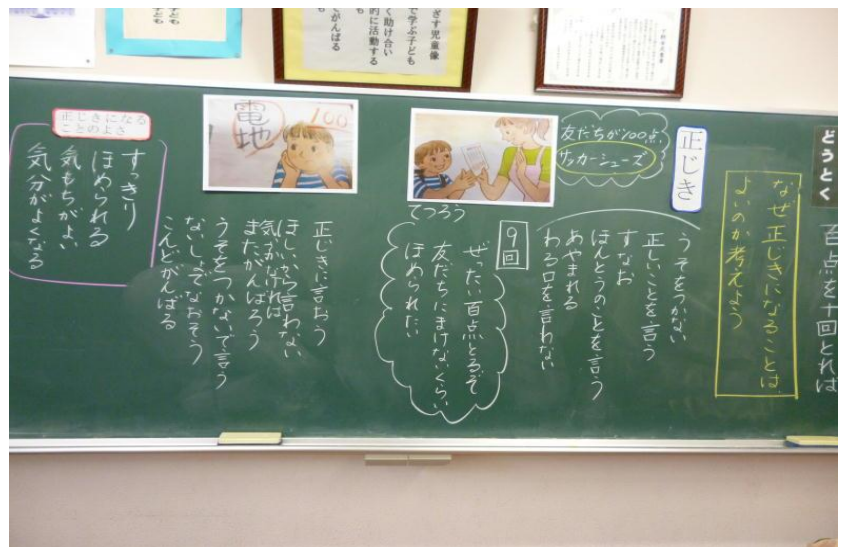 ざす児童像
で学ぶ子ども
く助け合い
的に活動する
がんばる
どうとく
百点を十回とれば
なぜ正じきになることは、
よいのか考えよう
正じき
うそをつかない
正しいことを言う
すなお
ほんとうのことを言う
あやまれる
わる口を言わない
友だちが100点
サッカーシューズ
てつろう
9回
ぜったい百点とるぞ
友だちにまけないくらい
ほめられたい
電地
100
正じきに言おう
ほしいから言わない
気づかなければ
またがんばろう
うそをつかないで言う
ないしょでなおそう
こんどがんばる
正じきになる
ことのよさ
すっきり
ほめられる
気もちがよい
気分がよくなる